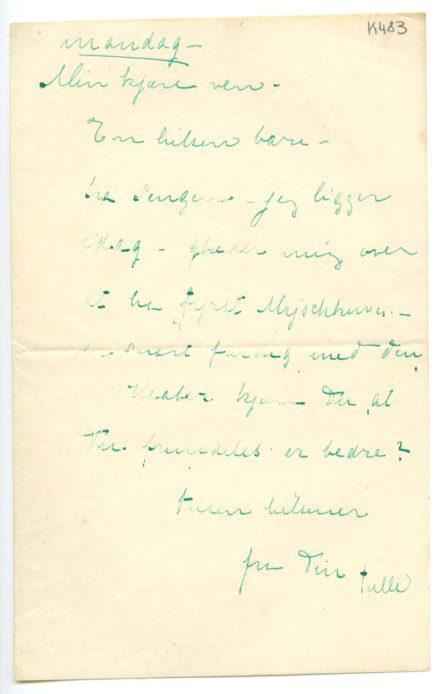 K483
mandag -
Min kjære ven -
En hilsen bare -
fra sengen - jeg ligger
idag - glæder mig over
at ha Fyrst Myschkin -
er snart færdig med den.
Haaber kjære Du, at
Du fremdeles er bedre?
tusen hilsener
fra Din Tulle